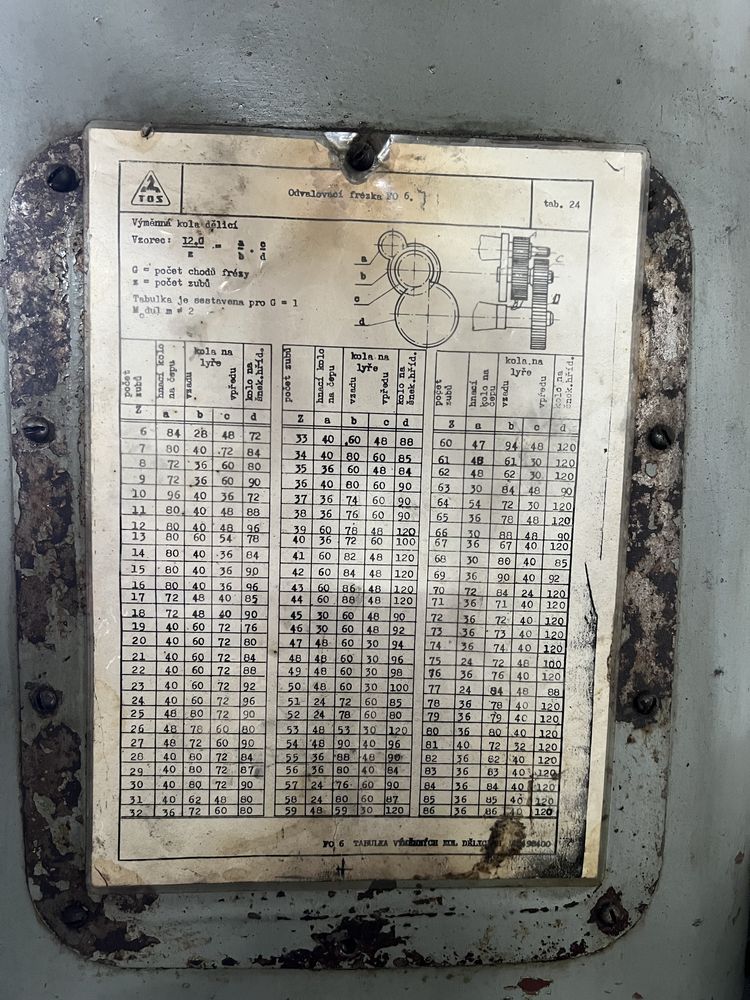 TOS
Odvalovací frézka FO 6.
tab. 24
Výměnná kola dělicí
Vzorec: 12.G / z = a / b . c / d
G = počet chodů frézy
z = počet zubů
Tabulka je sestavena pro G = 1
Modul m = 2
a
b
c
d
počet zubů hnací kolo na čepu kola na lyře vzadu vpředu kolo na šnek.hříd.
Z a b c d
6 84 28 48 72
7 80 40 72 84
8 72 36 60 80
9 72 36 60 90
10 96 40 36 72
11 80 40 48 88
12 80 40 48 96
13 80 60 54 78
14 80 40 36 84
15 80 40 36 90
16 80 40 36 96
17 72 48 40 85
18 72 48 40 90
19 40 60 72 76
20 40 60 72 80
21 40 60 72 84
22 40 60 72 88
23 40 60 72 92
24 40 60 72 96
25 48 80 72 90
26 48 78 60 80
27 48 72 60 90
28 40 80 72 84
29 40 80 72 87
30 40 80 72 90
31 40 62 48 80
32 36 72 60 80
počet zubů hnací kolo na čepu kola na lyře vzadu vpředu kolo na šnek.hříd.
Z a b c d
33 40 60 48 88
34 40 80 60 85
35 36 60 48 84
36 40 80 60 90
37 36 74 60 90
38 36 76 60 90
39 60 78 48 120
40 36 72 60 100
41 60 82 48 120
42 60 84 48 120
43 60 86 48 120
44 60 88 48 120
45 30 60 48 90
46 30 60 48 92
47 48 60 30 94
48 48 60 30 96
49 48 60 30 98
50 48 60 30 100
51 24 72 60 85
52 24 78 60 80
53 48 53 30 120
54 48 90 40 96
55 36 88 48 90
56 36 80 40 84
57 24 76 60 90
58 24 80 60 87
59 48 59 30 120
počet zubů hnací kolo na čepu kola na lyře vzadu vpředu kolo na šnek.hříd.
Z a b c d
60 47 94 48 120
61 48 61 30 120
62 48 62 30 120
63 30 84 48 90
64 54 72 30 120
65 36 78 48 120
66 30 88 48 90
67 36 67 40 120
68 30 80 40 85
69 36 90 40 92
70 72 84 24 120
71 36 71 40 120
72 36 72 40 120
73 36 73 40 120
74 36 74 40 120
75 24 72 48 100
76 36 76 40 120
77 24 84 48 88
78 36 78 40 120
79 36 79 40 120
80 36 80 40 120
81 40 72 32 120
82 36 82 40 120
83 36 83 40 120
84 36 84 40 120
85 36 85 40 120
86 36 86 40 120
FO 6 TABULKA VÝMĚNNÝCH KOL